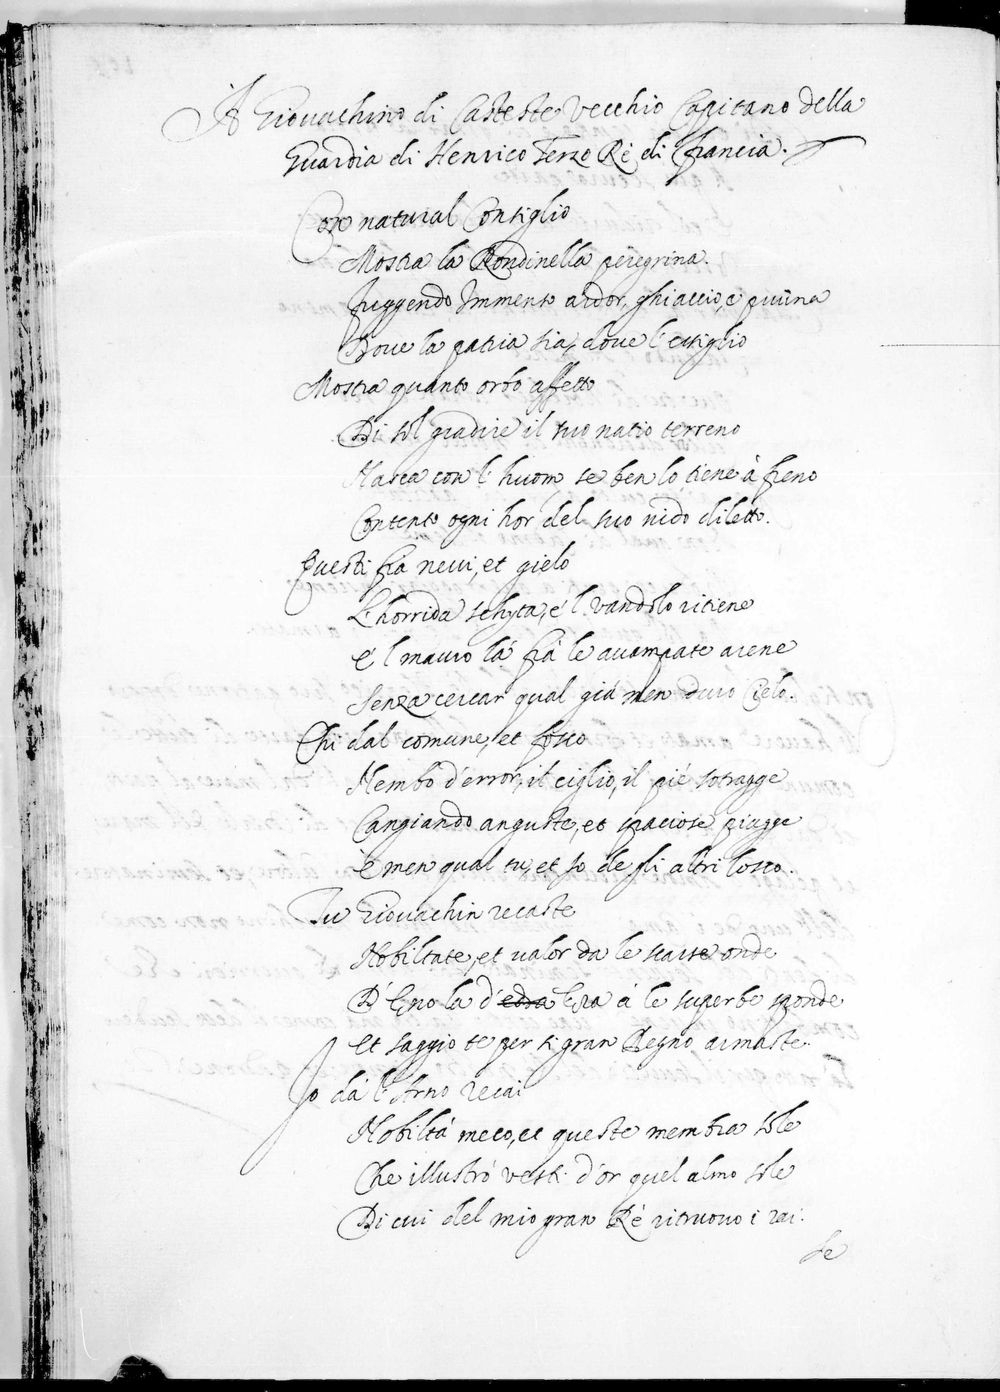 A Giovachino di Casteste Vecchio Capitano della
Guardia di Henrico Terzo Rè di Francia.
Con natural Consiglio
Mostra la Rondinella peregrina.
fuggendo Immenso ardor, ghiaccio, e pruina
Dove la patria sia, dove l'essiglio
Mostra quanto orbo affetto
Di sol gradire il suo natio terreno
Nasca con l'huom se ben lo tiene à freno
Contento ogni hor del suo nido diletto.
Questi frà nevi, et gielo
L'horrida schyta, e'l vandolo ritiene
E'l mauro là frà le avampate arene
Senza cercar qual già men duro Cielo.
Chi dal comune, et fosco
Nembo d'error, il ciglio, il piè sotragge
Cangiando anguste, et spaciose piagge
è men qual tu, et io de gli altri losco.
Tu Giovachin recaste
Nobiltate, et valor da le scarse onde
D'Enola d'edra Era à le superbe sponde
Et saggio te per si gran Regno armaste.
Jo dà l'Arno recai
Nobiltà meco, et queste membra sole
Che illustrò vesti d'or quel almo sole
Di cui del mio gran Rè ritruovo i rai.
se